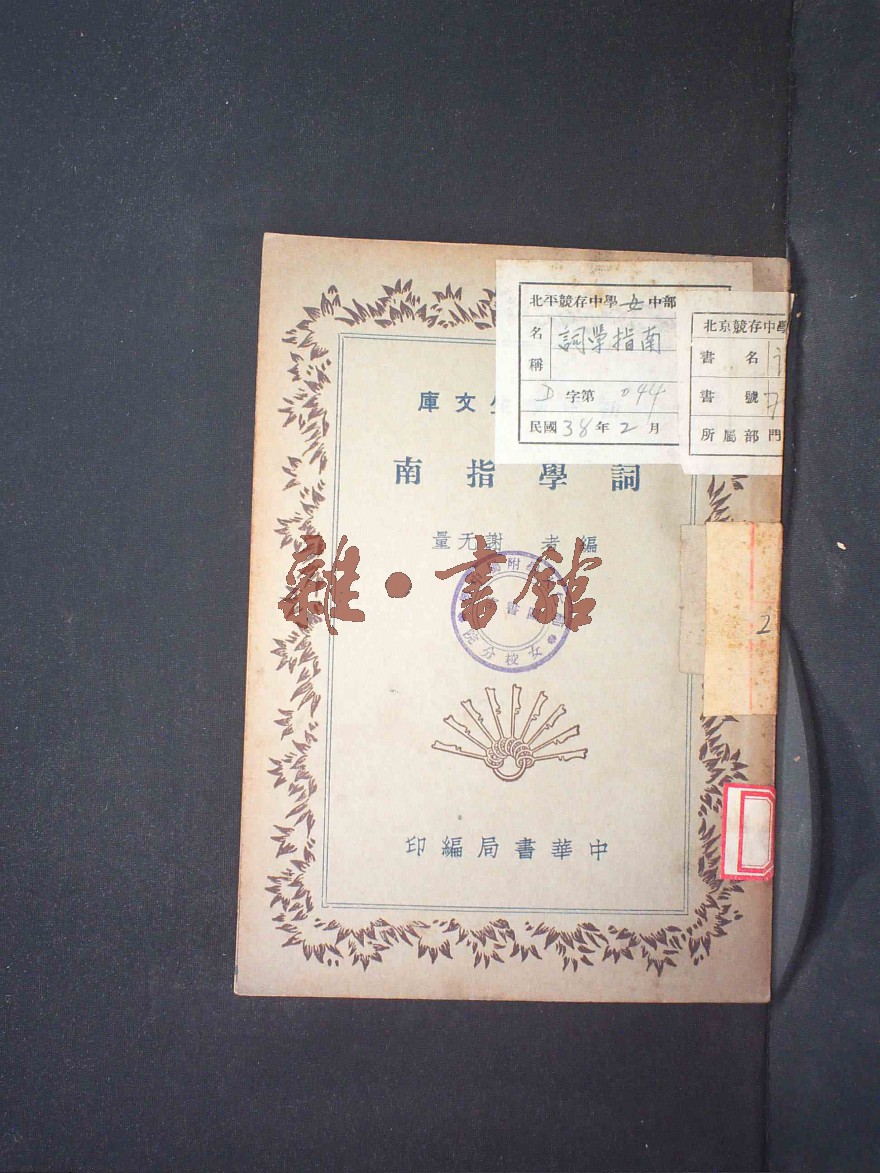 北平競存中學女中部
名稱 詞學指南
D 字第 044
民國38年2月
北京競存中學
書名
書號
所屬部門
文庫
詞學指南
編者 謝无量
雜·書館
女校分院
2
D
中華書局編印